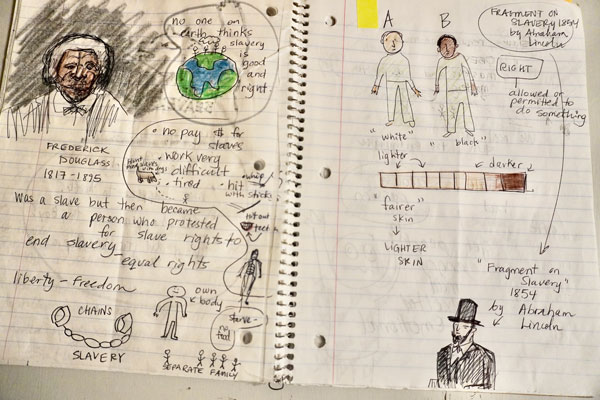 no one on
earth thinks
slavery
is
good
and
right
FREDERICK
DOUGLASS
1817-1895
• no pay $ for
slaves
• work very
difficult
• tired
&
• whip
hit
with sticks
was a slave but then became
a person who protested
for slave rights to
end slavery-
equal rights
liberty - freedom
CHAINS
SLAVERY
own
body
starve -
no
food
SEPARATE FAMILY
A
B
"white"
"black"
lighter
darker
"fairer
skin"
LIGHTER
SKIN
FRAGMENT ON
SLAVERY 1854
by Abraham
Lincoln
RIGHT
allowed or
permitted to
do something
"Fragment on
Slavery"
1854
by Abraham
Lincoln